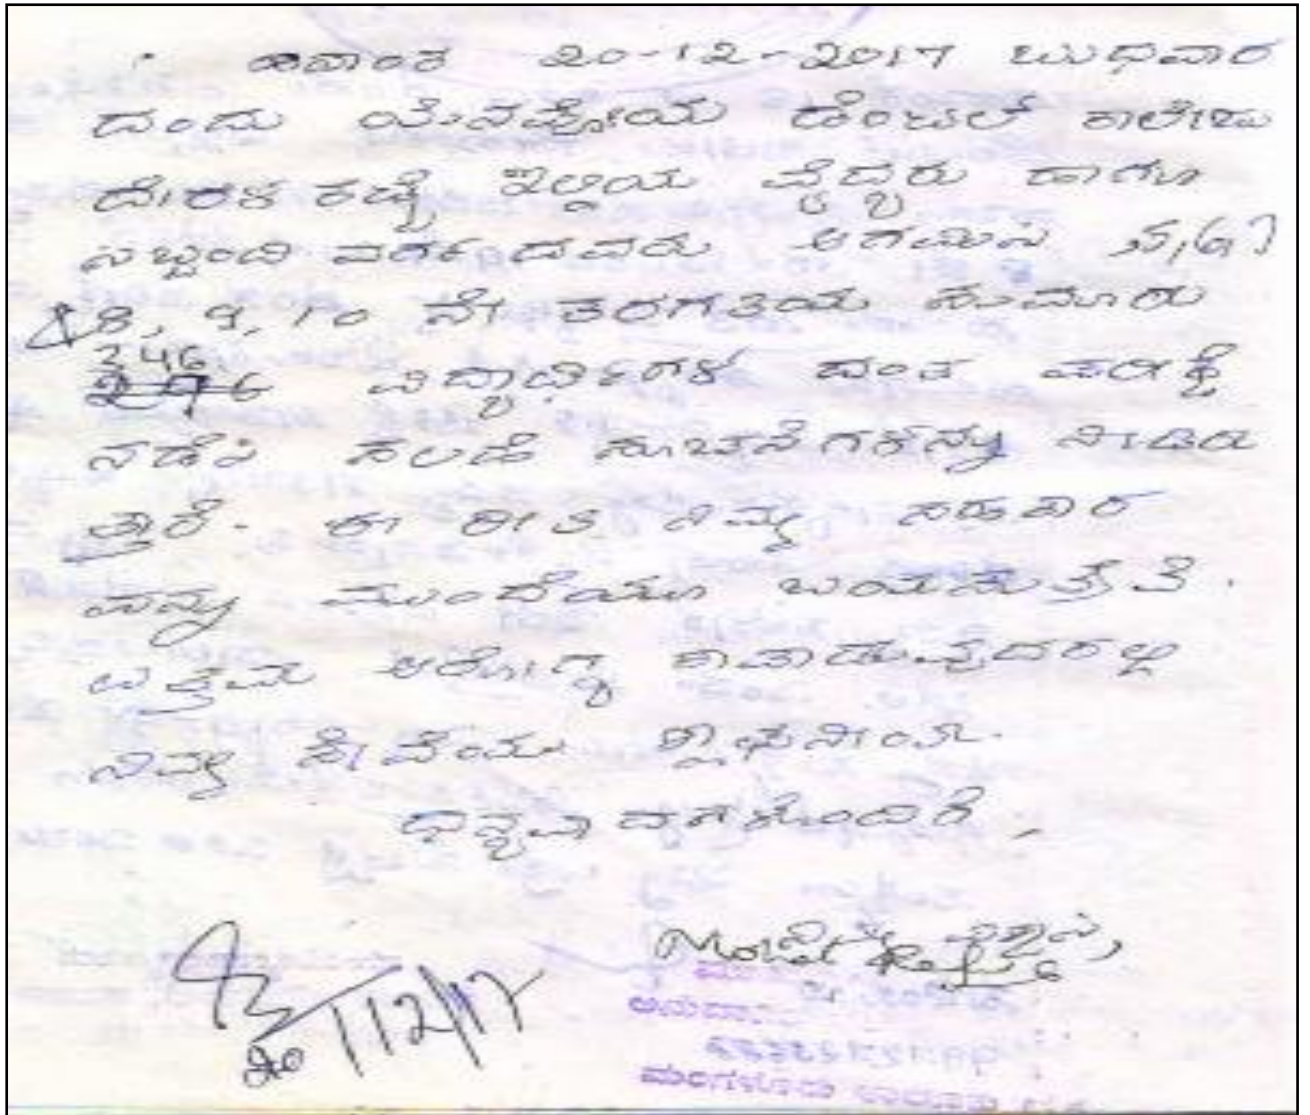 ದಿನಾಂಕ 20-12-2017 ಬುಧವಾರ
ದಂದು ಯೆನಪ್ಪೋಯ ಡೆಂಟಲ್ ಕಾಲೇಜು
ದೇರಳಕಟ್ಟೆ ಇಲ್ಲಿಯ ವೈದ್ಯರು ಹಾಗೂ
ಸಿಬ್ಬಂದಿ ವರ್ಗದವರು ಆಗಮಿಸಿ
8, 9, 10 ನೇ ತರಗತಿಯ ಸುಮಾರು
246 ವಿದ್ಯಾರ್ಥಿಗಳ ದಂತ ಪರೀಕ್ಷೆ
ನಡೆಸಿ ಸಲಹೆ ಸೂಚನೆಗಳನ್ನು ನೀಡಿರು
ತ್ತಾರೆ. ಈ ರೀತಿ ನಿಮ್ಮ ಸಹಕಾರ
ವನ್ನು ಮುಂದೆಯೂ ಬಯಸುತ್ತೇವೆ.
ಉತ್ತಮ ಆರೋಗ್ಯ ಕಾಪಾಡುವುದರಲ್ಲಿ
ನಿಮ್ಮ ಸೇವೆಯು ಶ್ಲಾಘನೀಯ.
ಧನ್ಯವಾದಗಳೊಂದಿಗೆ,
20/12/17
ಮಂಗಳೂರು